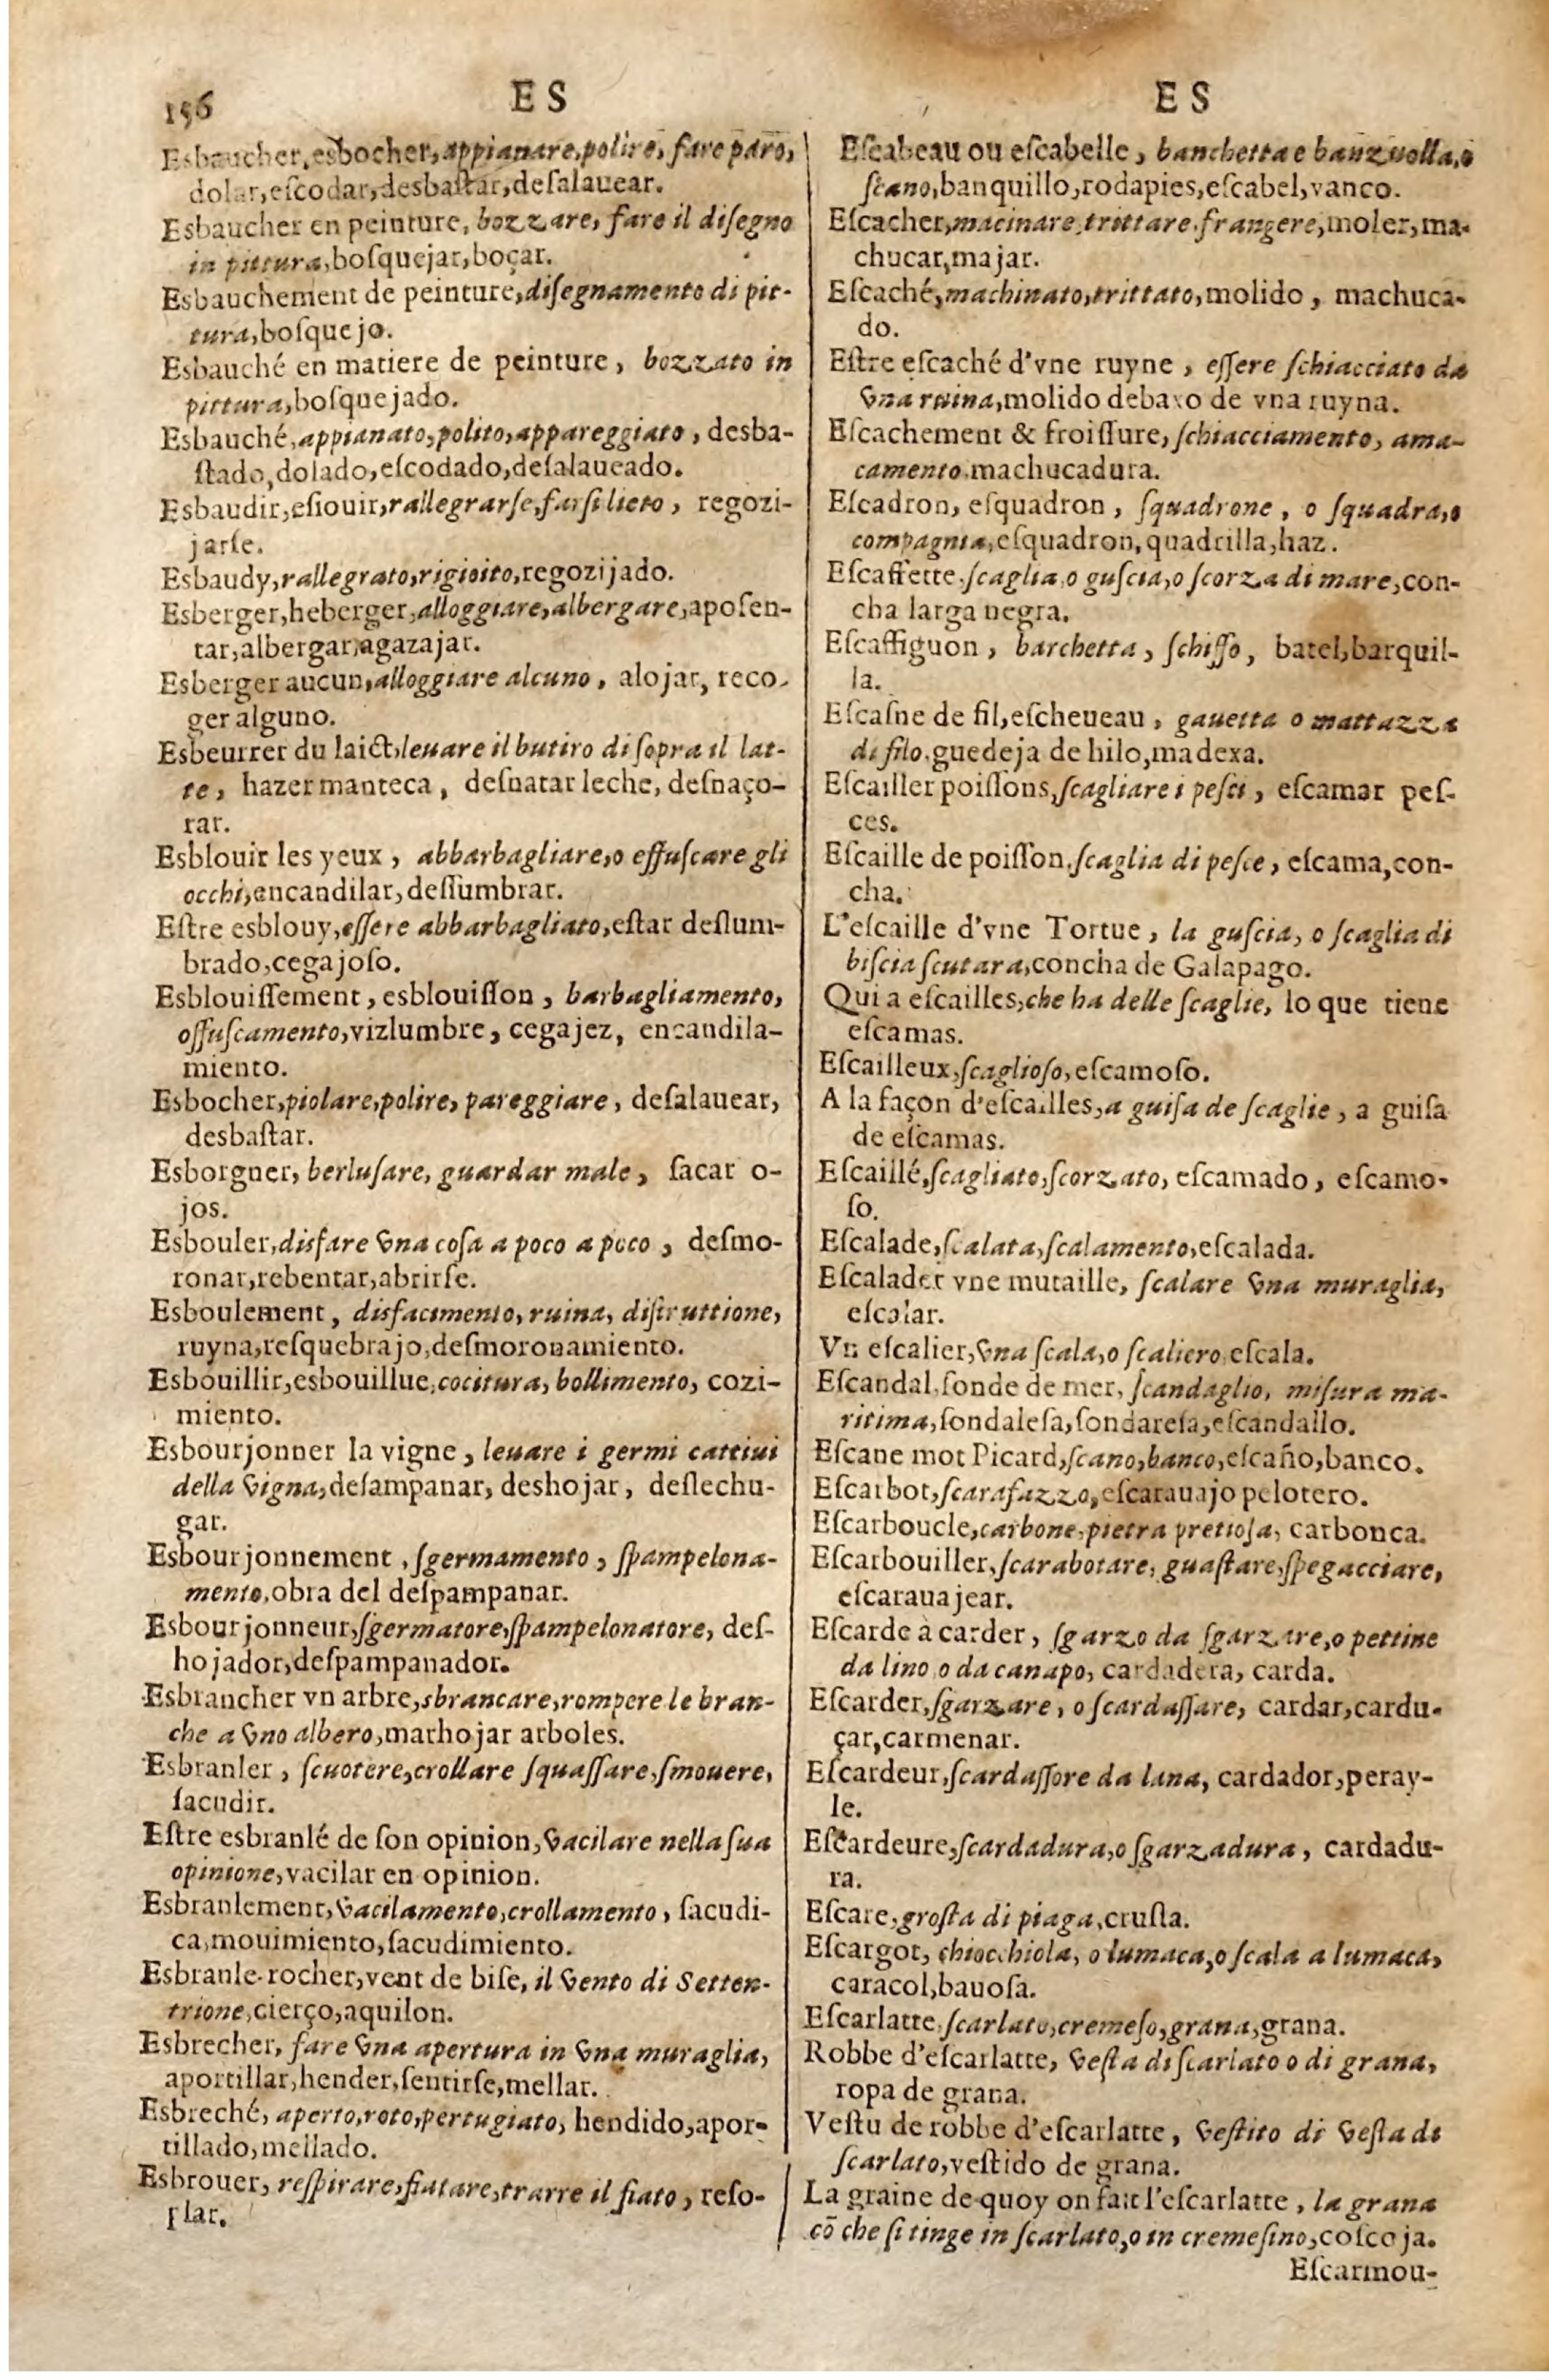 156
ES
ES
Esbaucher, esbocher, appianare, polire, fare paro,
dolar, eſcodar, desbaſtar, deſalauear.
Esbaucher en peinture, bozzare, fare il diſegno
in pittura, boſquejar, boçar.
Esbauchement de peinture, diſegnamento di pit-
tura, boſquejo.
Esbauché en matiere de peinture, bozzato in
pittura, boſquejado.
Esbauché, appianato, polito, appareggiato, desba-
ſtado, dolado, eſcodado, deſalaueado.
Esbaudir, eſiouir, rallegrarſe, farſi lieto, regozi-
jarſe.
Esbaudy, rallegrato, rigioito, regozijado.
Esberger, heberger, alloggiare, albergare, apoſen-
tar, albergar, agazajar.
Esberger aucun, alloggiare alcuno, alojar, reco-
ger alguno.
Esbeurrer du laict, leuare il butiro di ſopra il lat-
te, hazer manteca, deſnatar leche, deſnaço-
rar.
Esblouir les yeux, abbarbagliare, o effuſcare gli
occhi, encandilar, deſſumbrar.
Eſtre esblouy, eſſere abbarbagliato, eſtar deſlum-
brado, cegajoſo.
Esblouiſſement, esblouiſſon, barbagliamento,
offuſcamento, vizlumbre, cegajez, encandila-
miento.
Esbocher, piolare, polire, pareggiare, deſalauear,
desbaſtar.
Esborgner, berluſare, guardar male, ſacar o-
jos.
Esbouler, disfare vna coſa a poco a poco, deſmo-
ronar, rebentar, abrirſe.
Esboulement, disfacimento, ruina, diſtruttione,
ruyna, reſquebrajo, deſmoronamiento.
Esbouillir, esbouillue, cocitura, bollimento, cozi-
miento.
Esbourjonner la vigne, leuare i germi cattiui
della vigna, deſampanar, deshojar, deſlechu-
gar.
Esbourjonnement, ſgermamento, ſpampelona-
mento, obra del deſpampanar.
Esbourjonneur, ſgermatore, ſpampelonatore, deſ-
hojador, deſpampanador.
Esbrancher vn arbre, sbrancare, rompere le bran-
che a vno albero, marhojar arboles.
Esbranler, ſcuotere, crollare ſquaſſare, ſmouere,
ſacudir.
Eſtre esbranlé de ſon opinion, vacilare nella ſua
opinione, vacilar en opinion.
Esbranlement, vacilamento, crollamento, ſacudi-
ca, mouimiento, ſacudimiento.
Esbranle-rocher, vent de biſe, il vento di Setten-
trione, cierço, aquilon.
Esbrecher, fare vna apertura in vna muraglia,
aportillar, hender, ſentirſe, mellar.
Esbreché, aperto, roto, pertugiato, hendido, apor-
tillado, mellado.
Esbrouer, reſpirare, fiatare, trarre il fiato, reſo-
plar.
Eſcabeau ou eſcabelle, banchetta e banzuolla, o
ſcano, banquillo, rodapies, eſcabel, vanco.
Eſcacher, macinare, trittare, frangere, moler, ma-
chucar, majar.
Eſcaché, machinato, trittato, molido, machuca-
do.
Eſtre eſcaché d'vne ruyne, eſſere ſchiacciato da
vna ruina, molido debaxo de vna ruyna.
Eſcachement & froiſſure, ſchiacciamento, ama-
camento, machucadura.
Eſcadron, eſquadron, ſquadrone, o ſquadra, o
compagnia, eſquadron, quadrilla, haz.
Eſcaffette, ſcaglia o guſcia, o ſcorza di mare, con-
cha larga negra.
Eſcaffiguon, barchetta, ſchiffo, batel, barquil-
la.
Eſcaſne de fil, eſcheueau, gauetta o mattazza
di filo, guedeja de hilo, madexa.
Eſcailler poiſſons, ſcagliare i peſci, eſcamar peſ-
ces.
Eſcaille de poiſſon, ſcaglia di peſce, eſcama, con-
cha.
L'eſcaille d'vne Tortue, la guſcia, o ſcaglia di
biſcia ſcutara, concha de Galapago.
Qui a eſcailles, che ha delle ſcaglie, lo que tiene
eſcamas.
Eſcailleux, ſcaglioſo, eſcamoſo.
A la façon d'eſcailles, a guiſa de ſcaglie, a guiſa
de eſcamas.
Eſcaillé, ſcagliato, ſcorzato, eſcamado, eſcamo-
ſo.
Eſcalade, ſcalata, ſcalamento, eſcalada.
Eſcalader vne muraille, ſcalare vna muraglia,
eſcalar.
Vn eſcalier, vna ſcala, o ſcaliero, eſcala.
Eſcandal, ſonde de mer, ſcandaglio, miſura ma-
ritima, ſondaleſa, ſondareſa, eſcandallo.
Eſcane mot Picard, ſcano, banco, eſcaño, banco.
Eſcarbot, ſcarafazzo, eſcarauajo pelotero.
Eſcarboucle, carbone, pietra pretioſa, carbonca.
Eſcarbouiller, ſcarabotare, guaſtare, ſpegacciare,
eſcarauajear.
Eſcarde à carder, ſgarzo da ſgarzare, o pettine
da lino o da canapo, cardadera, carda.
Eſcarder, ſgarzare, o ſcardaſſare, cardar, cardu-
çar, carmenar.
Eſcardeur, ſcardaſſore da lana, cardador, peray-
le.
Eſcardeure, ſcardadura, o ſgarzadura, cardadu-
ra.
Eſcare, groſta di piaga, cruſta.
Eſcargot, chiocchiola, o lumaca, o ſcala a lumaca,
caracol, bauoſa.
Eſcarlatte, ſcarlato, cremeſo, grana, grana.
Robbe d'eſcarlatte, veſta di ſcarlato o di grana,
ropa de grana.
Veſtu de robbe d'eſcarlatte, veſtito di veſta di
ſcarlato, veſtido de grana.
La graine de quoy on fait l'eſcarlatte, la grana
cō che ſi tinge in ſcarlato, o in cremeſino, coſcoja.
Eſcarmou-